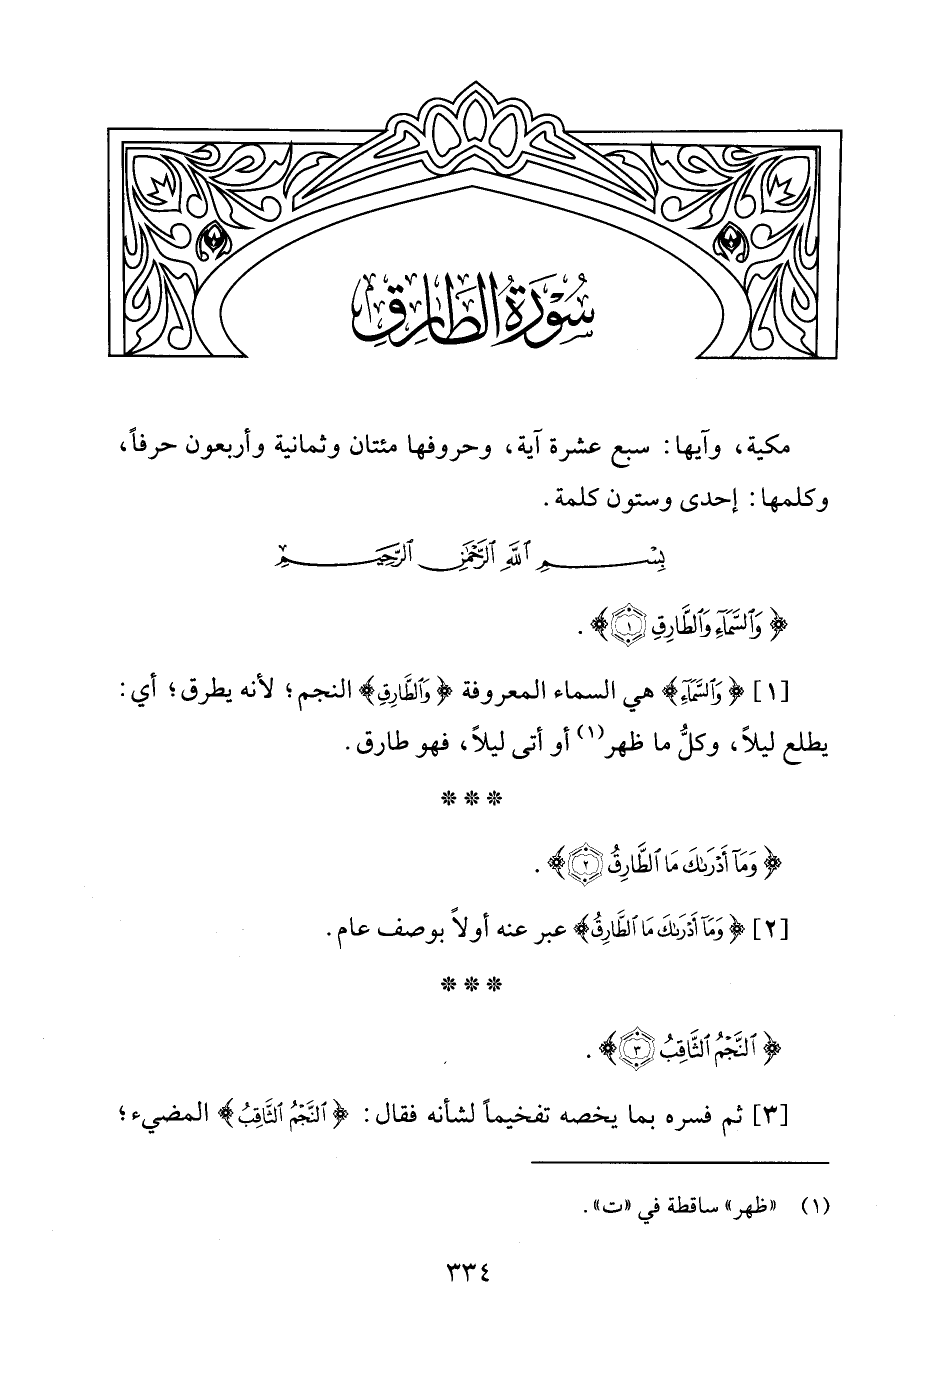 سُوْرَةُ الطَّارِقِ
مكية، وآيها: سبع عشرة آية، وحروفها مئتان وثمانية وأربعون حرفاً،
وكلمها: إحدى وستون كلمة.
بِسْمِ ٱللَّهِ ٱلرَّحْمَٰنِ ٱلرَّحِيمِ
﴿وَٱلسَّمَآءِ وَٱلطَّارِقِ ١﴾.
[١] ﴿وَٱلسَّمَآءِ﴾ هي السماء المعروفة ﴿وَٱلطَّارِقِ﴾ النجم؛ لأنه يطرق؛ أي:
يطلع ليلاً، وكلُّ ما ظهر(١) أو أتى ليلاً، فهو طارق.
***
﴿وَمَآ أَدْرَىٰكَ مَا ٱلطَّارِقُ ٢﴾.
[٢] ﴿وَمَآ أَدْرَىٰكَ مَا ٱلطَّارِقُ﴾ عبر عنه أولاً بوصف عام.
***
﴿ٱلنَّجْمُ ٱلثَّاقِبُ ٣﴾.
[٣] ثم فسره بما يخصه تفخيماً لشأنه فقال: ﴿ٱلنَّجْمُ ٱلثَّاقِبُ﴾ المضيء؛
(١) «ظهر» ساقطة في «ت».
٣٣٤